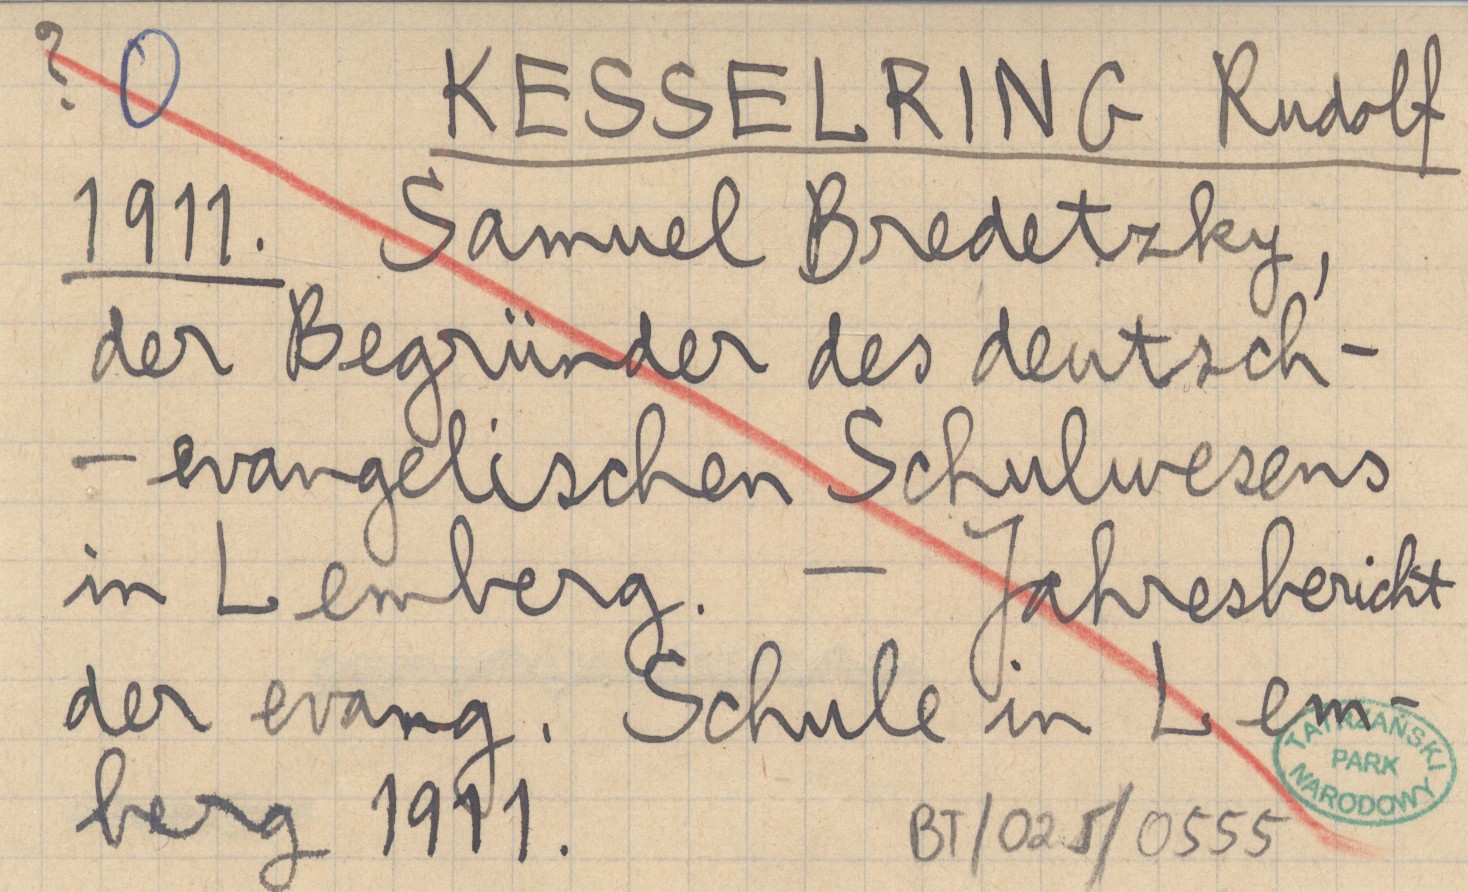 ? O KESSELRING Rudolf
1911. Samuel Bredetzky,
der Begründer des deutsch-
- evangelischen Schulwesens
in Lemberg. — Jahresbericht
der evang. Schule in Lem-
berg 1911.
TATRZAŃSKI
PARK
NARODOWY
BT/025/0555